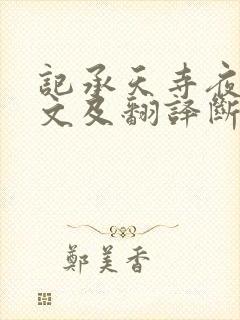 記承天寺夜
文及翻譯斷
鄭美香